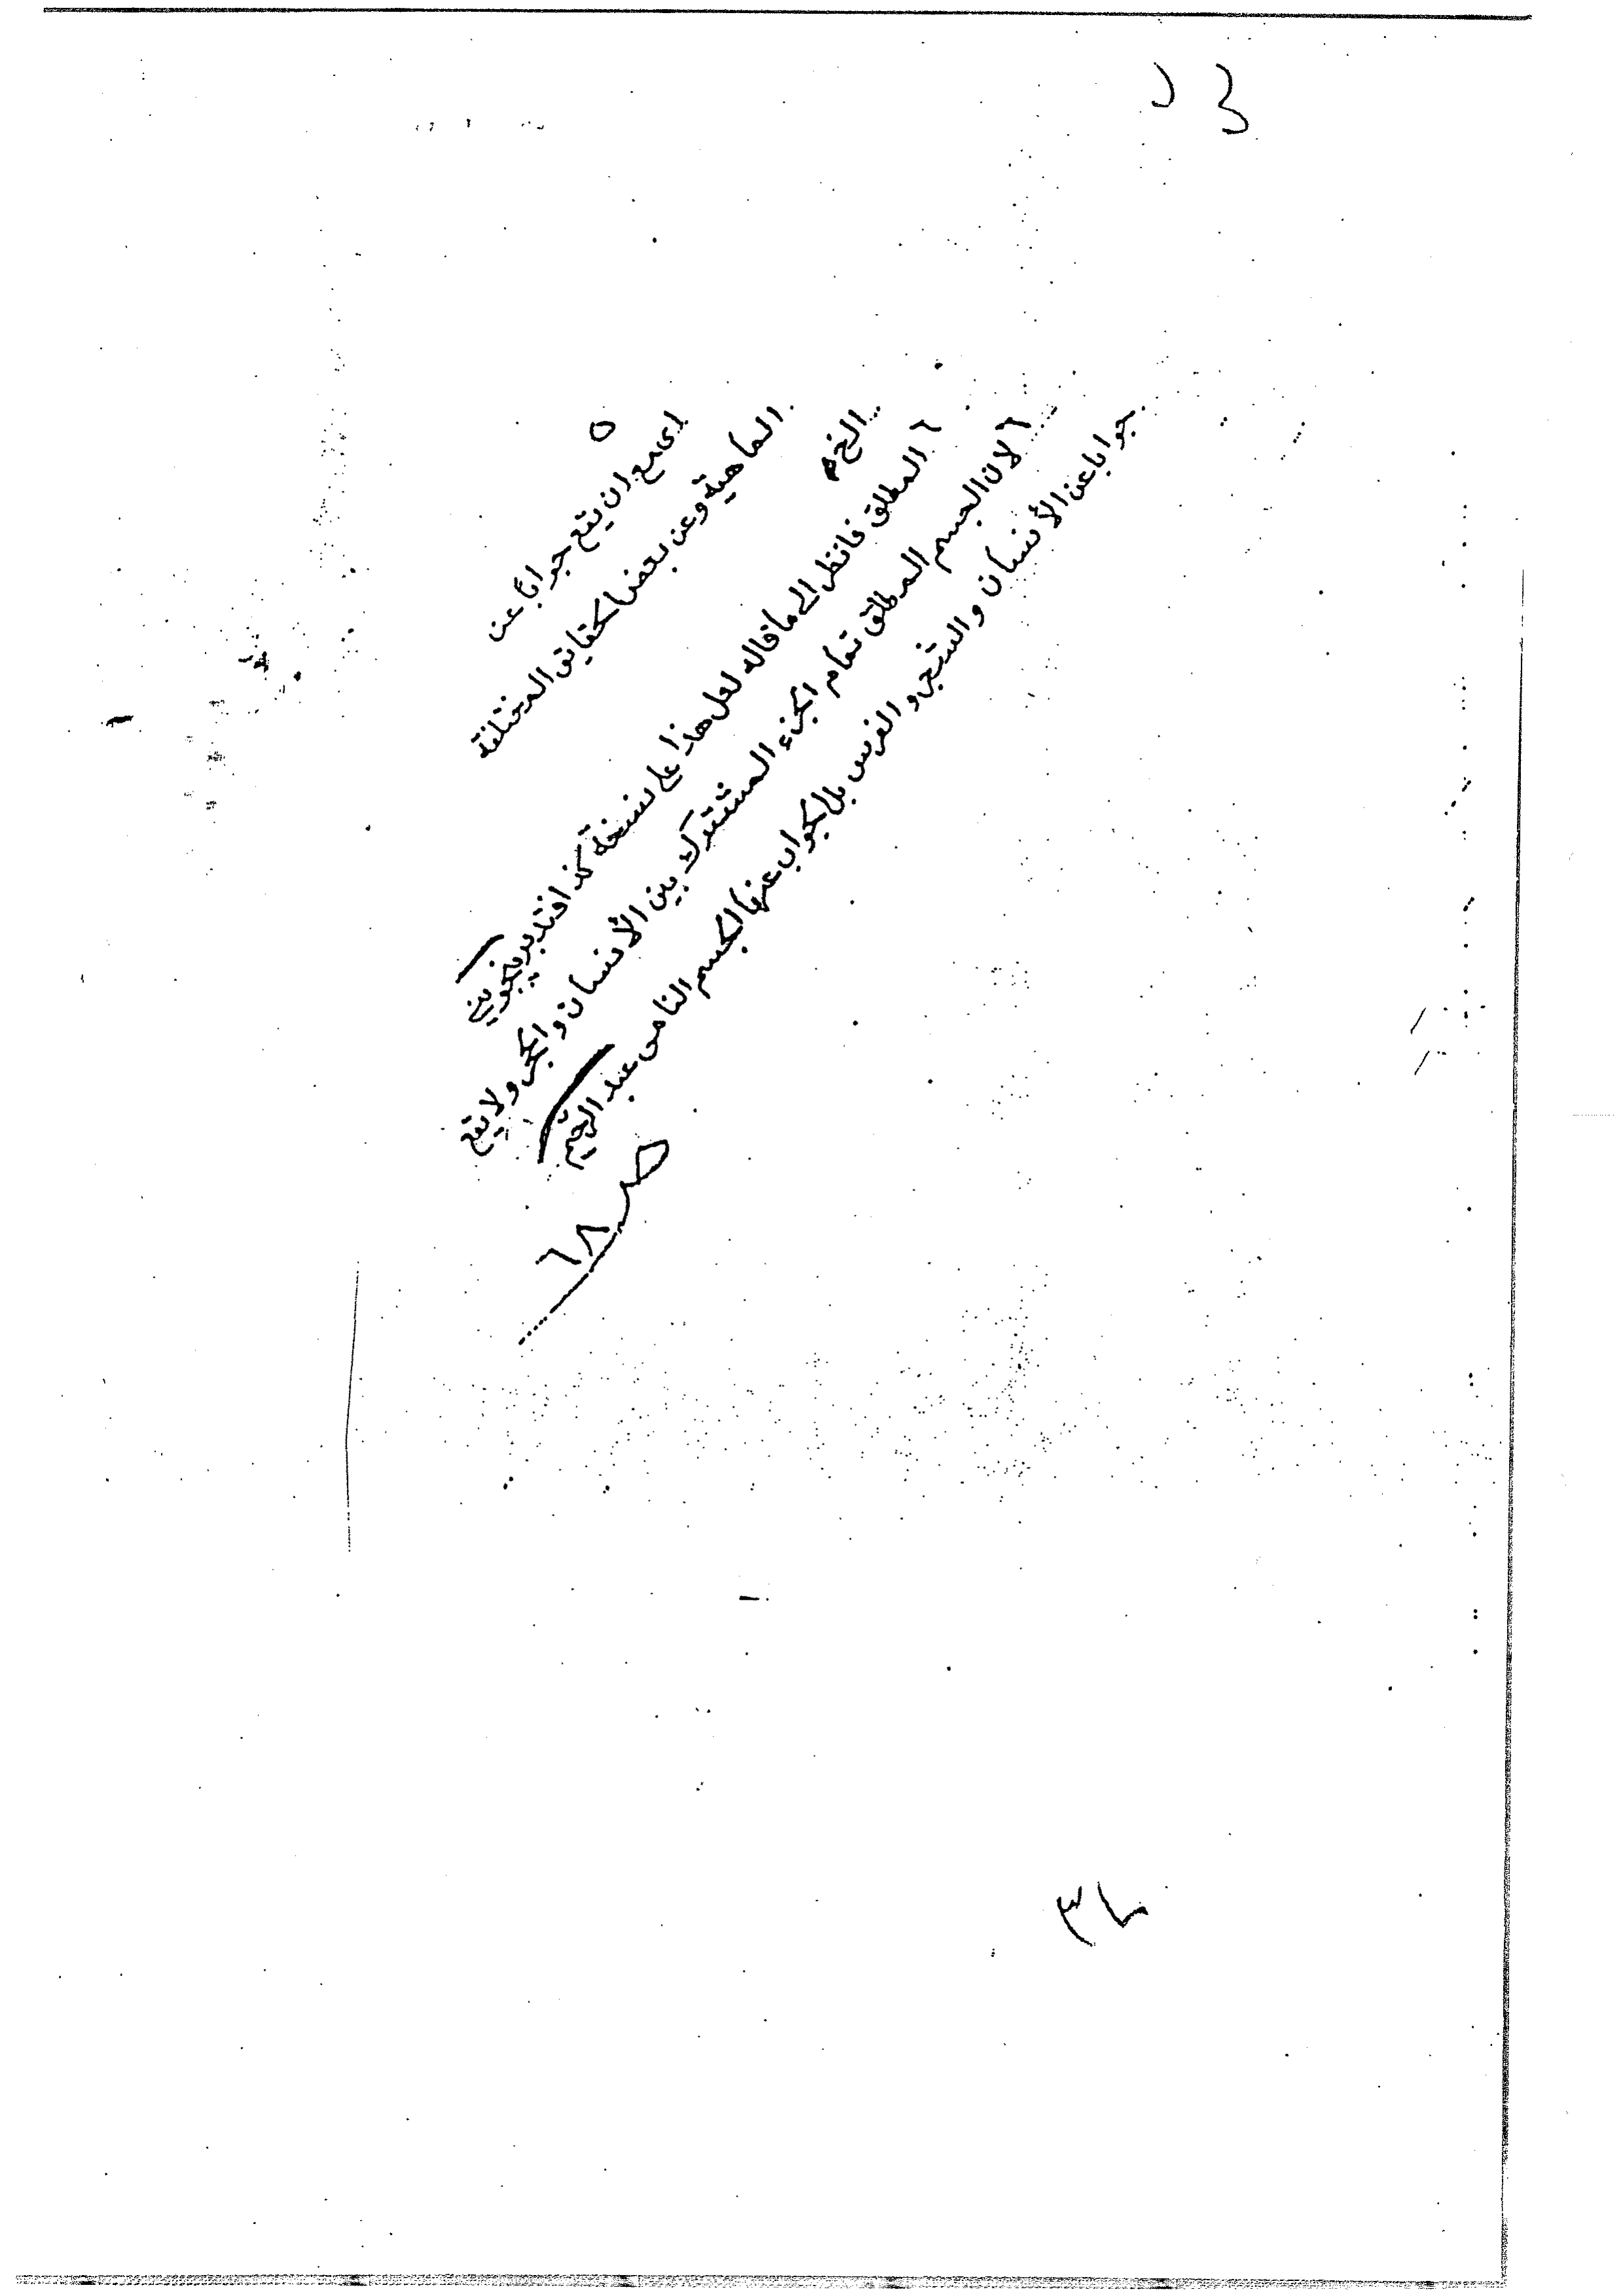 ٥
اى مع ان يقع جوابًا عن
الماهية وعن بعض الحقايق المختلفة
الخ م
٦ المطلق فانظر الى ما قاله لعل هذا على نسخة كذا فتدبر بيجوينى
٦ لان الجسم المطلق تمام الجزء المشترك بين الأنسان والحجر ولا يقع
جوابا عن الأنسان والشجر والفرس بل الجواب عنها الجسم النامى عبد الرحيم
ص ٦٨